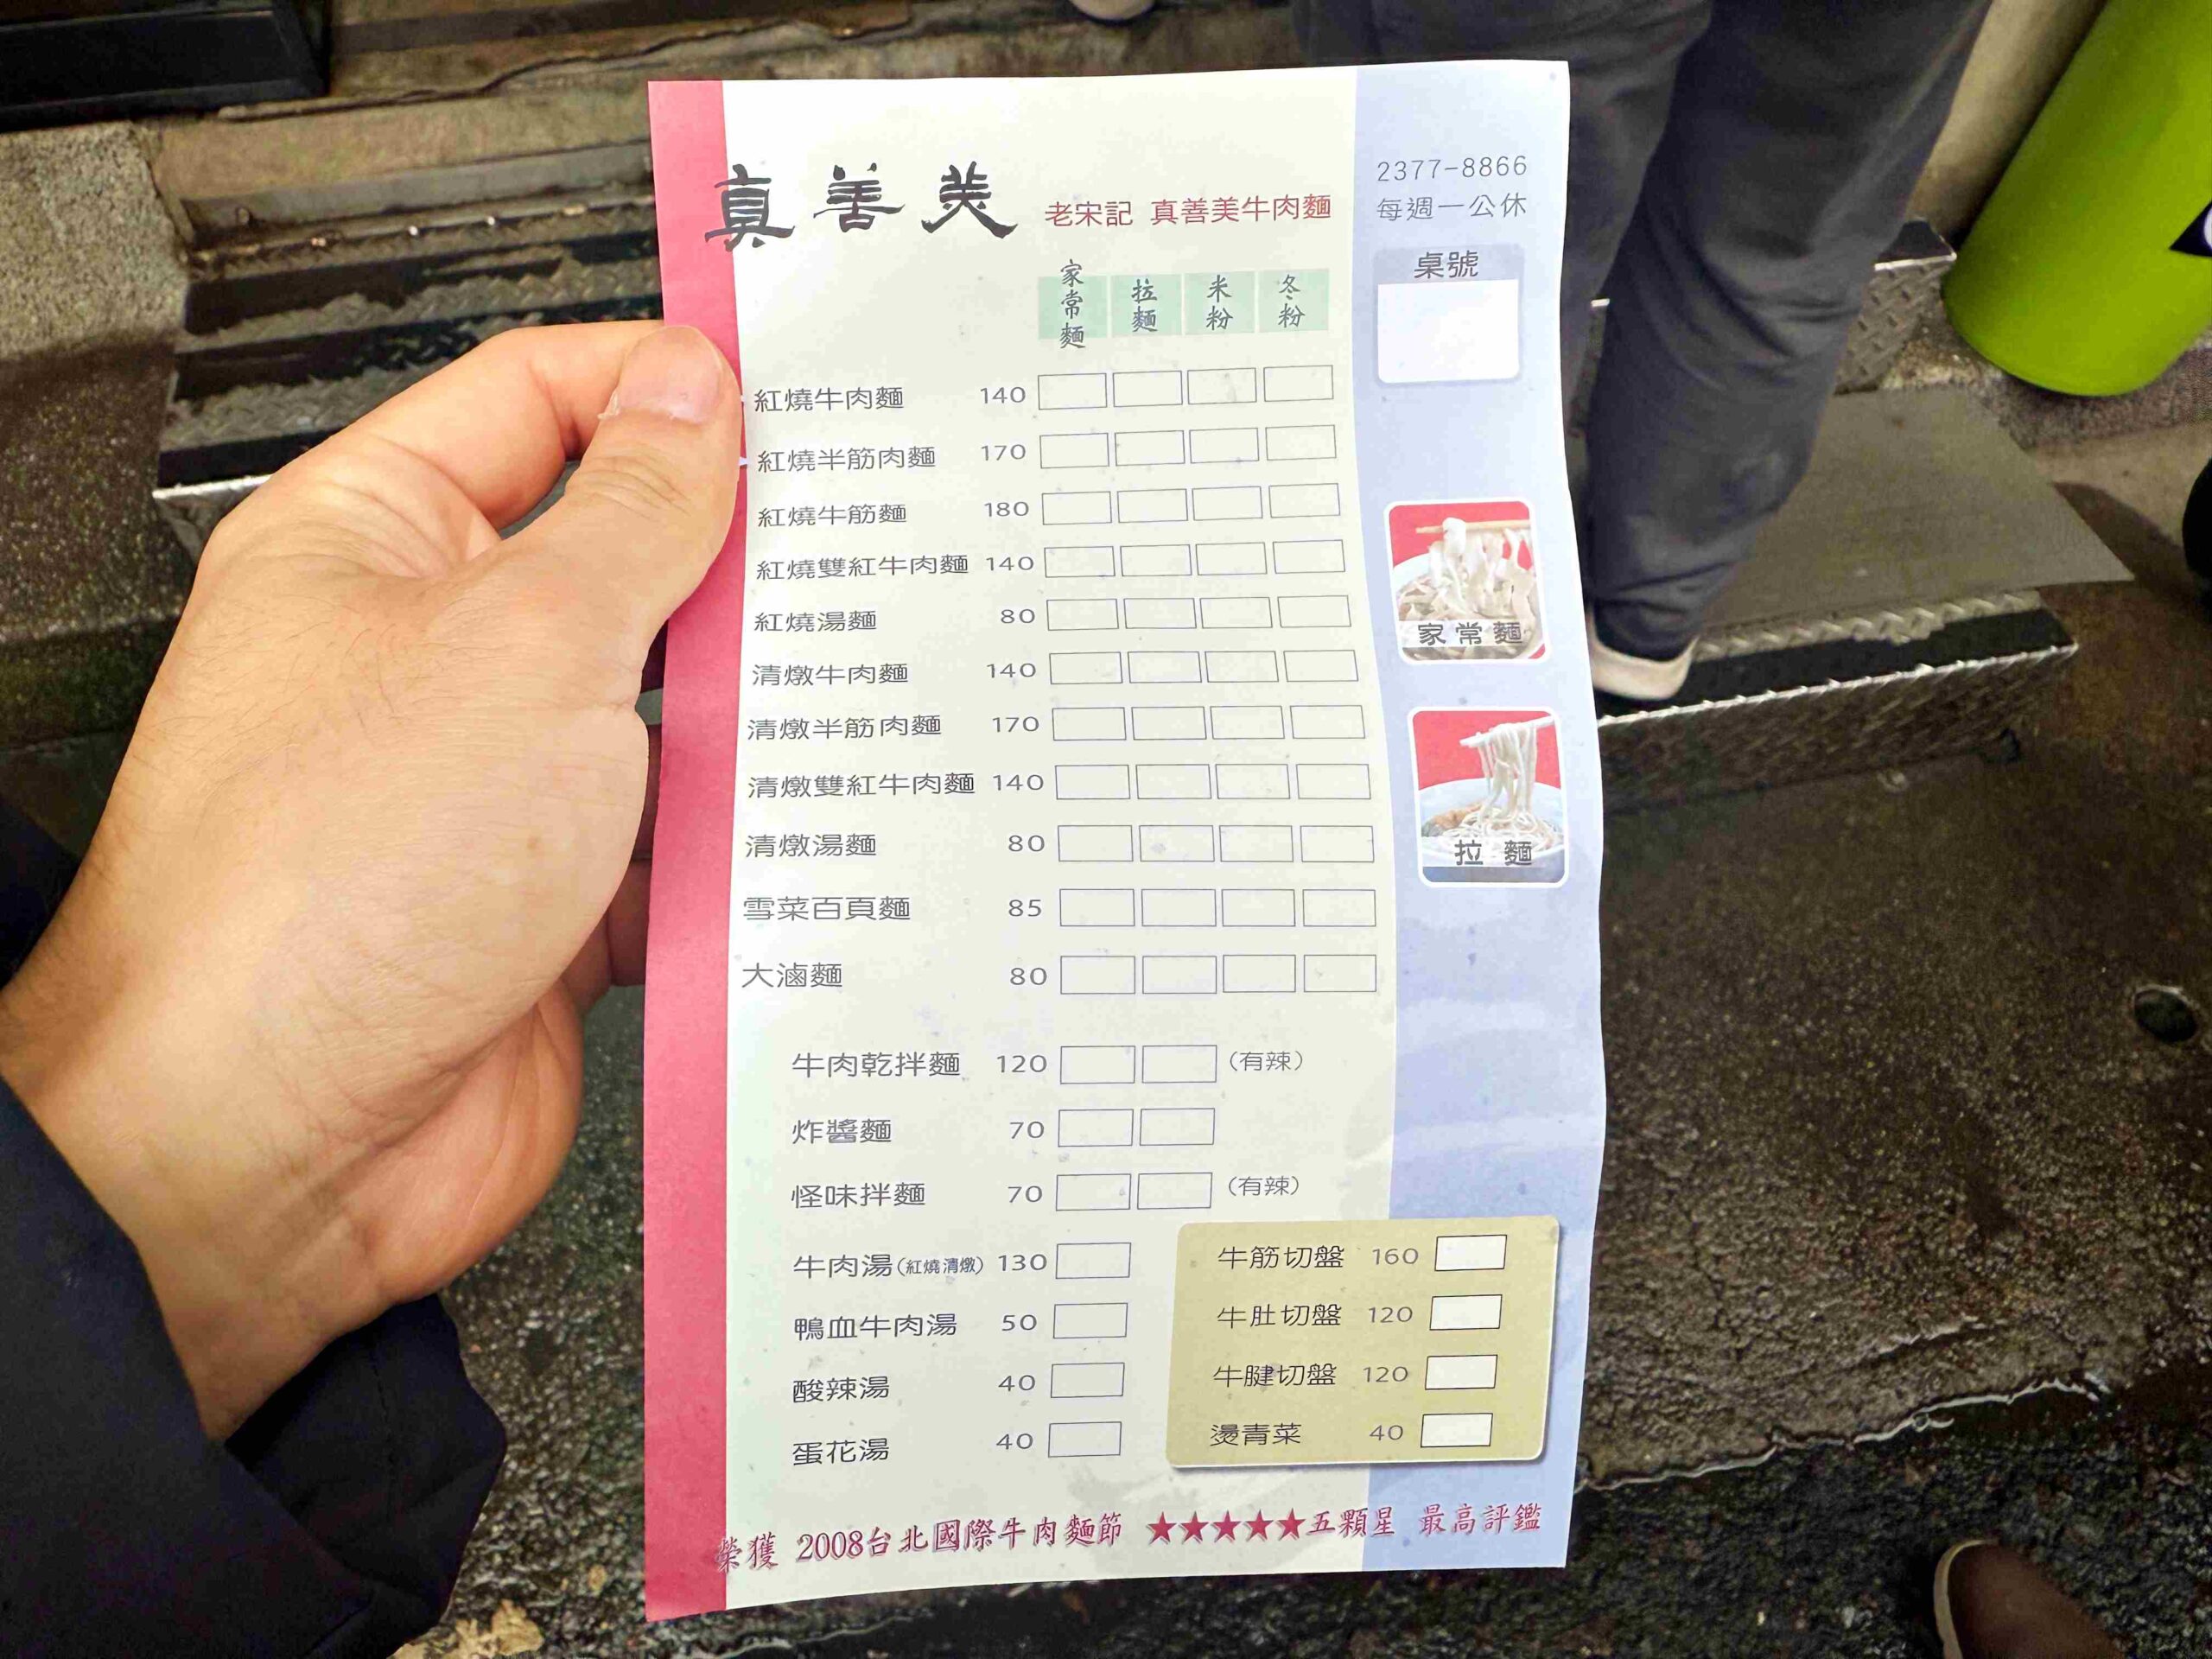 真善美 老宋記 真善美牛肉麵
2377-8866
每週一公休
桌號
家常麵 拉麵 米粉 冬粉
紅燒牛肉麵 140
紅燒半筋肉麵 170
紅燒牛筋麵 180
紅燒雙紅牛肉麵 140
紅燒湯麵 80
清燉牛肉麵 140
清燉半筋肉麵 170
清燉雙紅牛肉麵 140
清燉湯麵 80
雪菜百頁麵 85
大滷麵 80
家常麵
拉麵
牛肉乾拌麵 120 (有辣)
炸醬麵 70
怪味拌麵 70 (有辣)
牛肉湯(紅燒清燉) 130
鴨血牛肉湯 50
酸辣湯 40
蛋花湯 40
牛筋切盤 160
牛肚切盤 120
牛腱切盤 120
燙青菜 40
榮獲 2008台北國際牛肉麵節 ★★★★★五顆星 最高評鑑